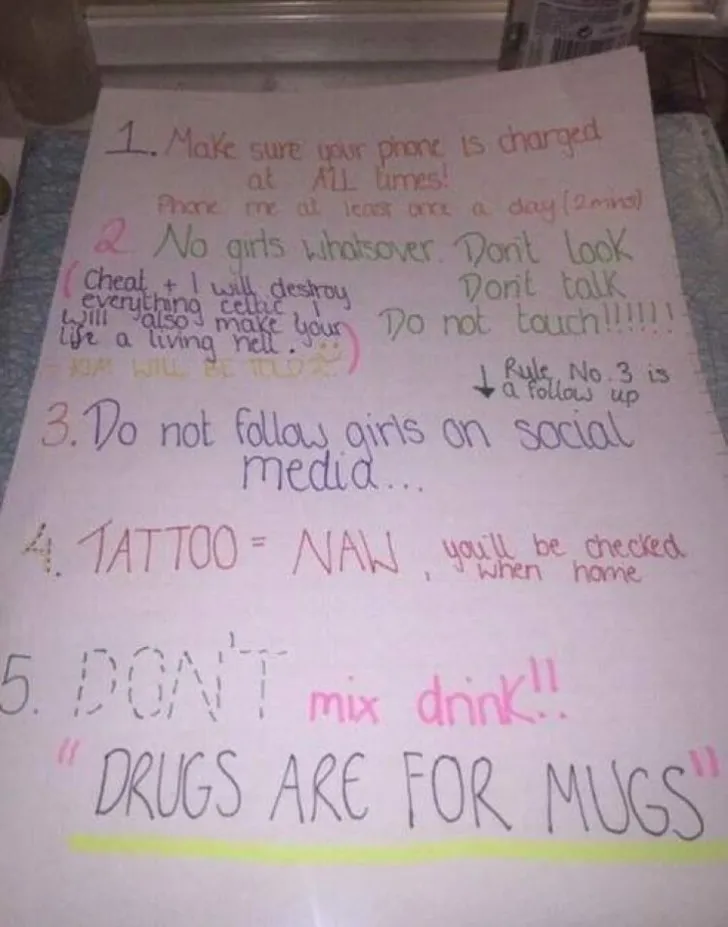 1. Make sure your phone is charged
at ALL times!
Phone me at least once a day (2 mins)
2. No girls whatsover. Don't look
Don't talk
Do not touch!!!!!!
(Cheat + I will destroy
everything celtic I
will also make your
life a living hell.
KIM WILL BE TOLD)
↓ Rule No. 3 is
a follow up
3. Do not follow girls on social
media...
4. TATTOO = NAW, you'll be checked
when home
5. DON'T mix drink!!
"DRUGS ARE FOR MUGS"